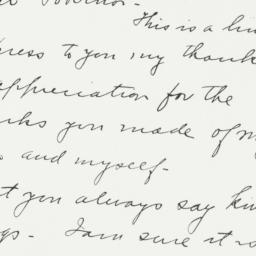 This is a
to you my thank
appreciation for the
you made of m
and myself-
t you always say
Iam sure it